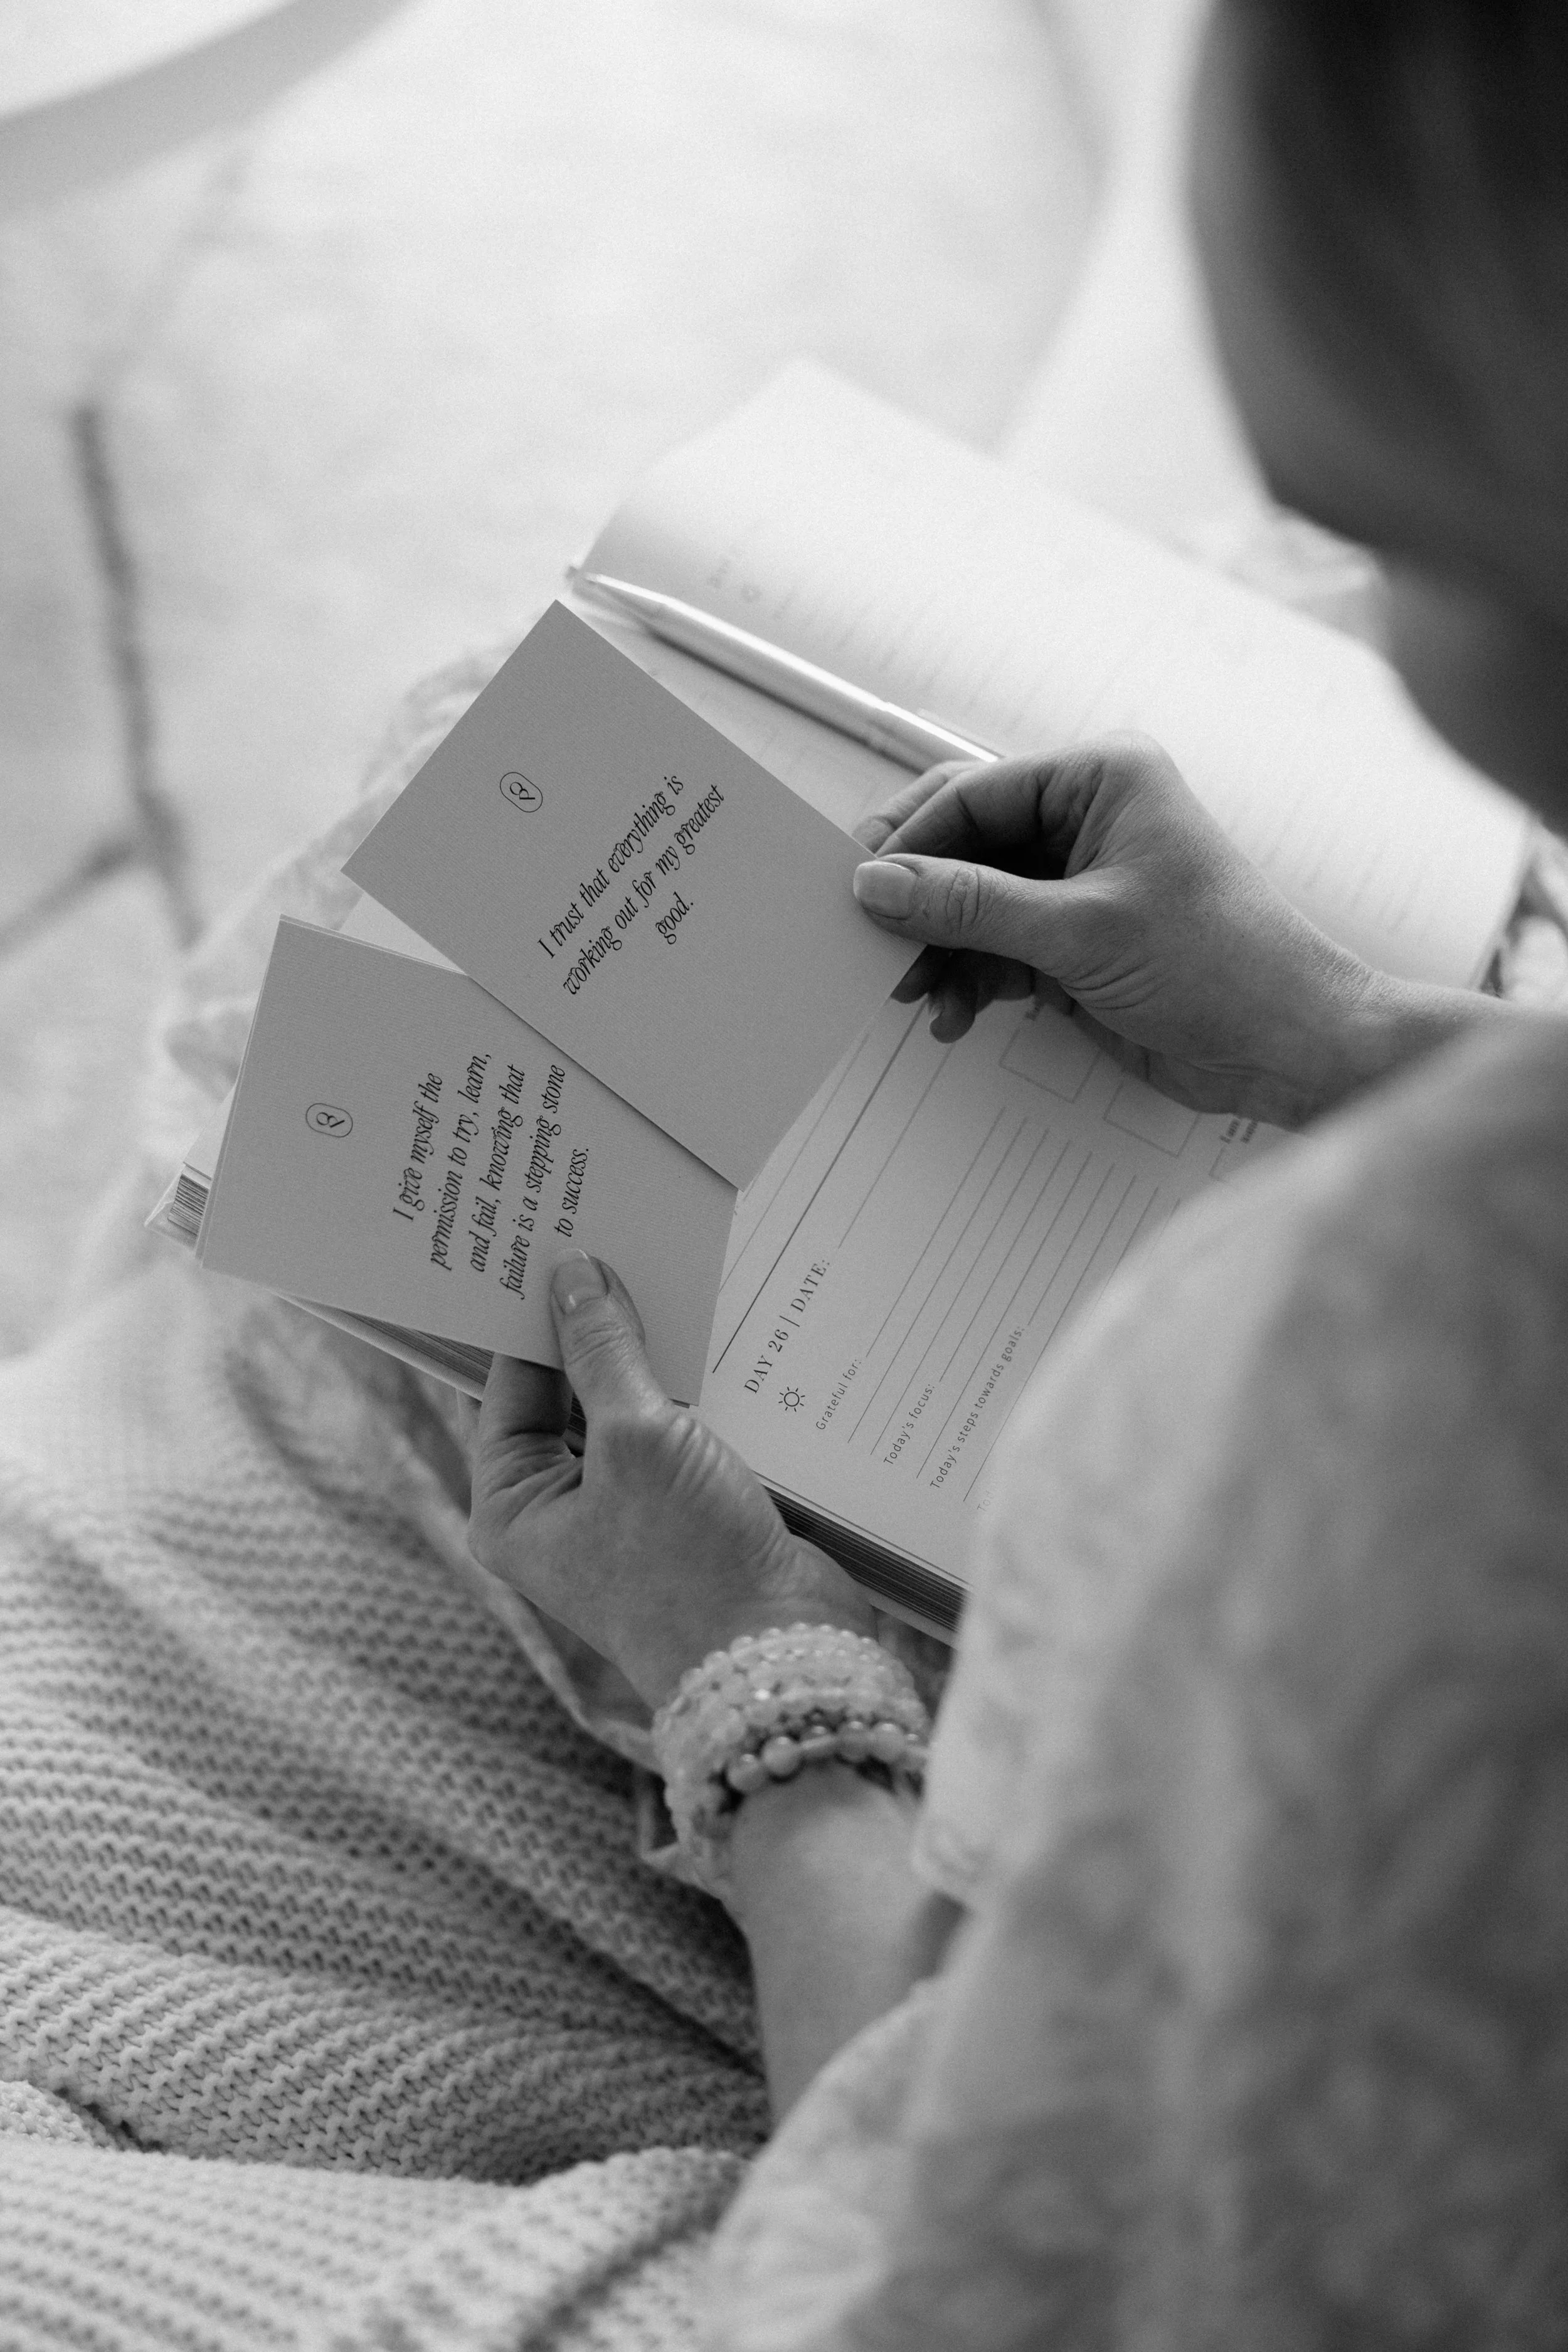 I trust that everything is
working out for my greatest
good.
I give myself the
permission to try, learn,
and fail, knowing that
failure is a stepping stone
to success.
DAY 26 | DATE:
Grateful for:
Today's focus:
Today's steps towards goals: